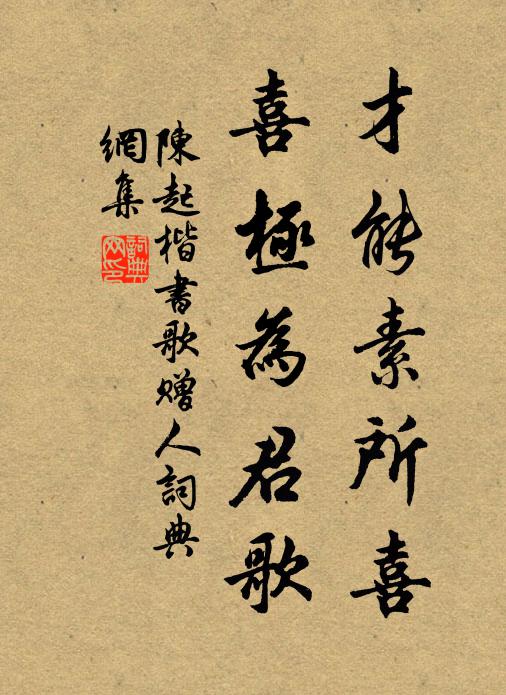 才能素所喜
喜極為君歌
陳起楷書歌贈人詞典
網集
詞典
网印